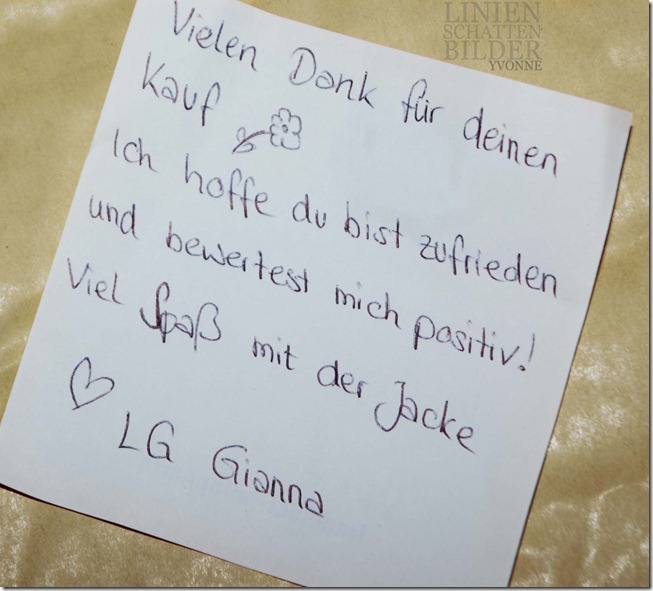 LINIEN
SCHATTEN
BILDER
YVONNE
Vielen Dank für deinen
Kauf
Ich hoffe du bist zufrieden
und bewertest mich positiv!
Viel Spaß mit der Jacke
LG Gianna